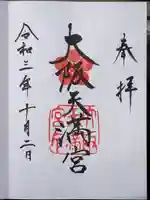 奉拝
大阪天満宮
令和三年十月二日